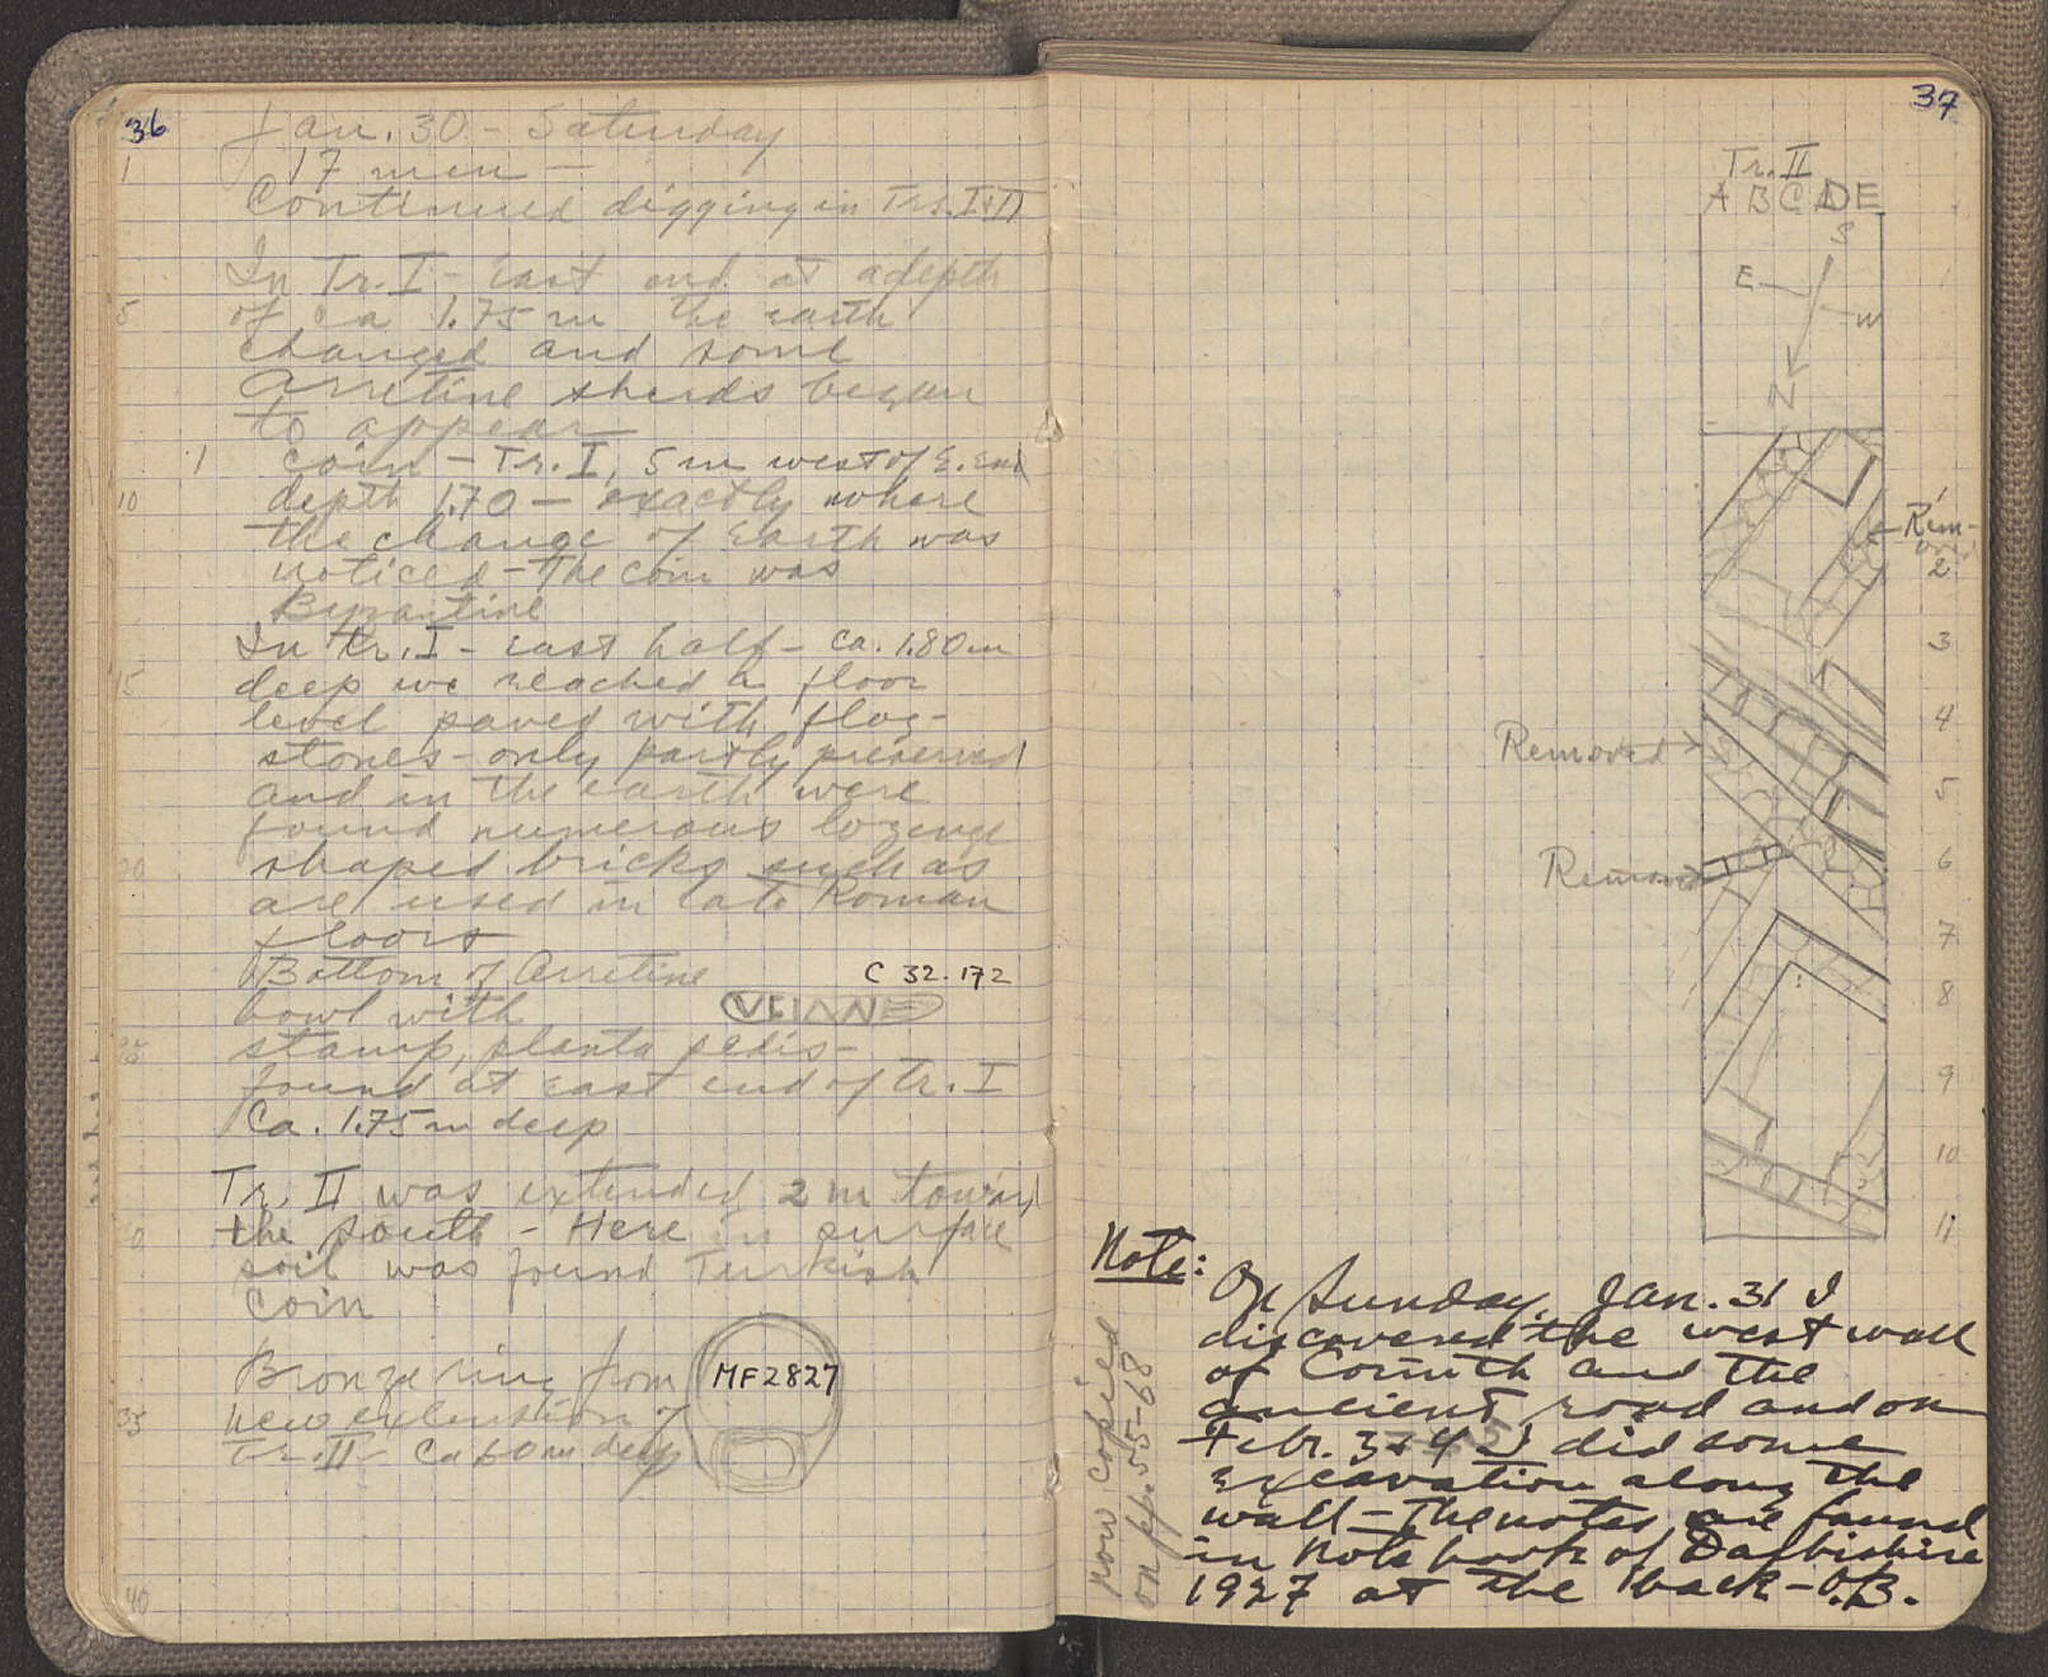 36
Jan. 30 - Saturday
1 17 men -
Continued digging in Trs. I & II
In Tr. I - East end at a depth
5 of ca 1.75 m the earth
changed and some
Arretine sherds began
to appear
1 coin - Tr. I, 5 m west of E. End
10 depth 1.70 - exactly where
the change of Earth was
noticed - the coin was
Byzantine
In Tr. I - East half - ca. 1.80 m
15 deep we reached a floor
level paved with flag-
stones - only partly preserved
and in the earth were
found numerous lozenge
20 shaped bricks such as
are used in late Roman
floors
Bottom of Arretine C 32.172
bowl with
stamp, planta pedis -
found at east end of Tr. I
Ca. 1.75 m deep
Tr. II was extended 2 m toward
the south - Here in surface
soil was found Turkish
Coin
Bronze ring from MF2827
35 new extension of
Tr. II - Ca deep
40
37
Tr. II
A B C D E
S
E
W
N
1
Rem-
oved
2
3
4
Removed
5
6
Removed
7
8
9
10
11
Note:
On Sunday, Jan. 31 I
discovered the west wall
of Corinth and the
ancient road and on
Febr. 3 & 4 I did some
excavation along the
wall - The notes are found
in Note book of Darbishire
1927 at the back - O.B.
now copied
on pp. 55-68